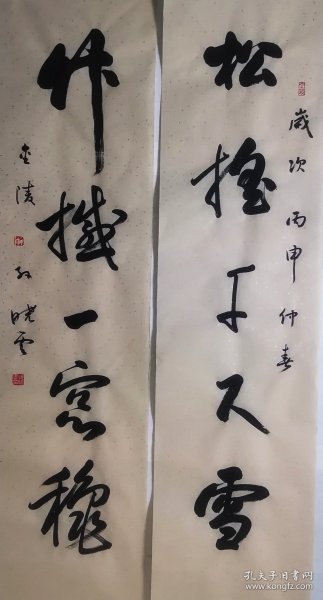 歲次丙申仲春
松搖千尺雪
竹撼一窗穐
金陵孙晓云
孔夫子旧书网